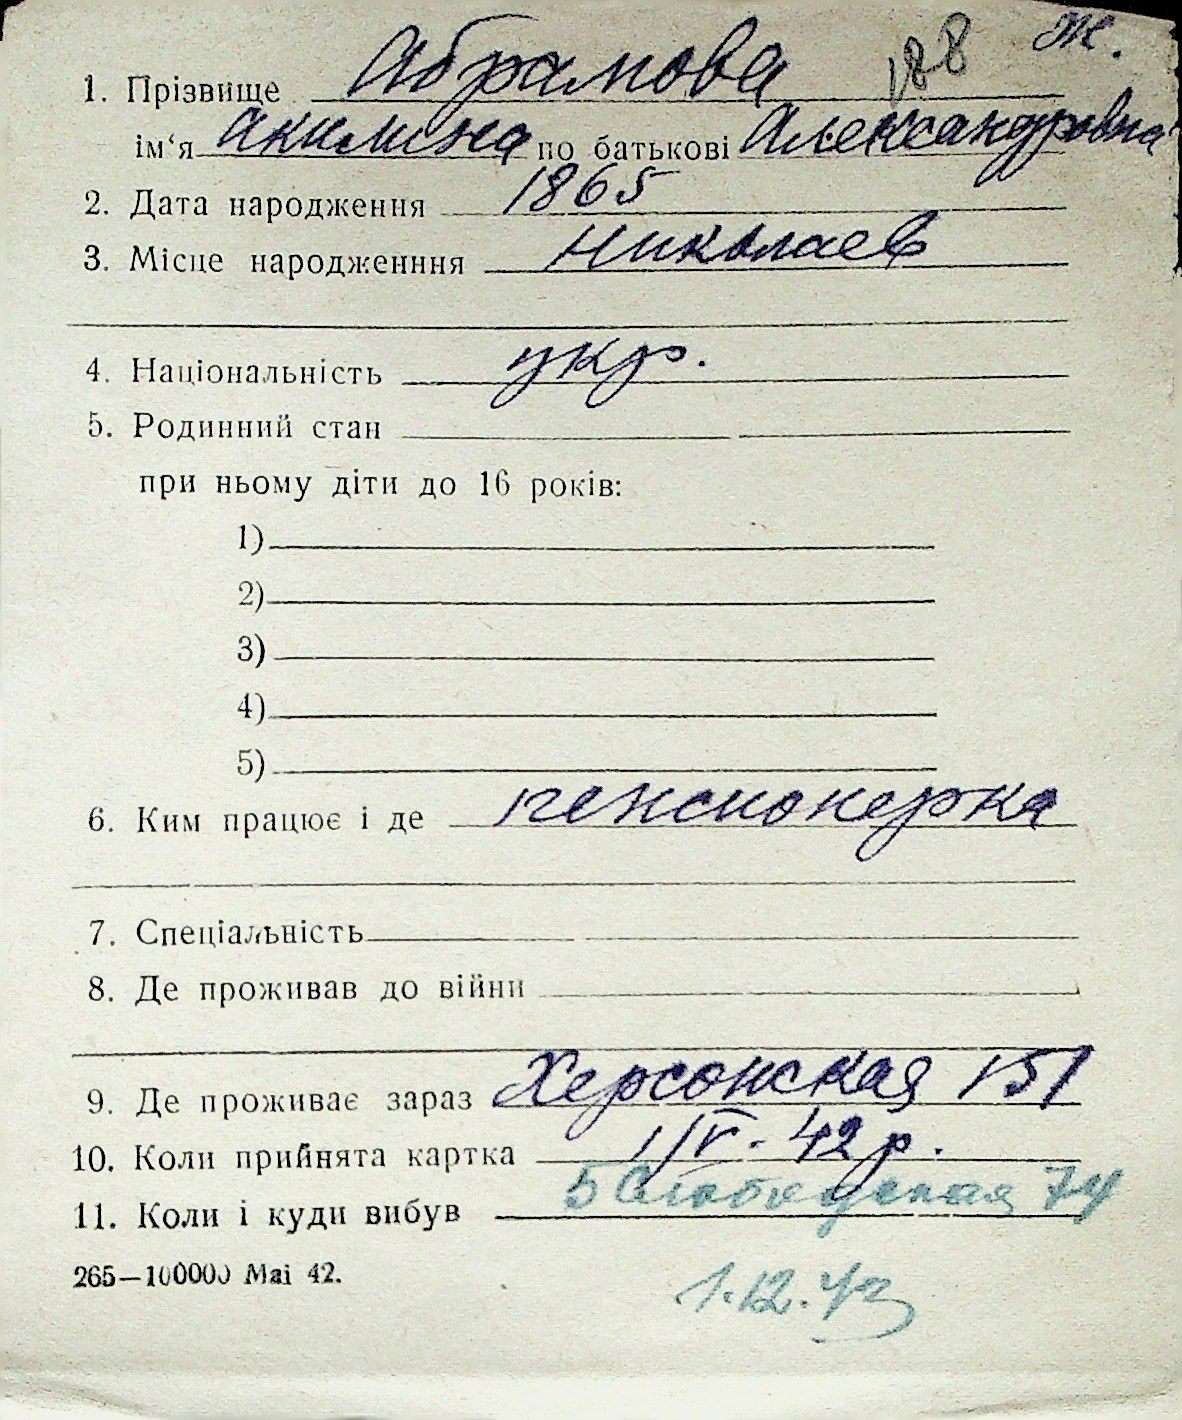 188 Ж.
1. Прізвище Абрамова
ім‘я Акилина по батькові Александровна
2. Дата народження 1865
3. Місце народженння Николаев
4. Національність укр.
5. Родинний стан
при ньому діти до 16 років:
1)
2)
3)
4)
5)
6. Ким працює і де пенсионерка
7. Спеціальність
8. Де проживав до війни
9. Де проживає зараз Херсонская 151
10. Коли прийнята картка 1/V-42 р.
11. Коли і куди вибув 5 Слободская 74
265—100000 Mai 42.
1.12.42